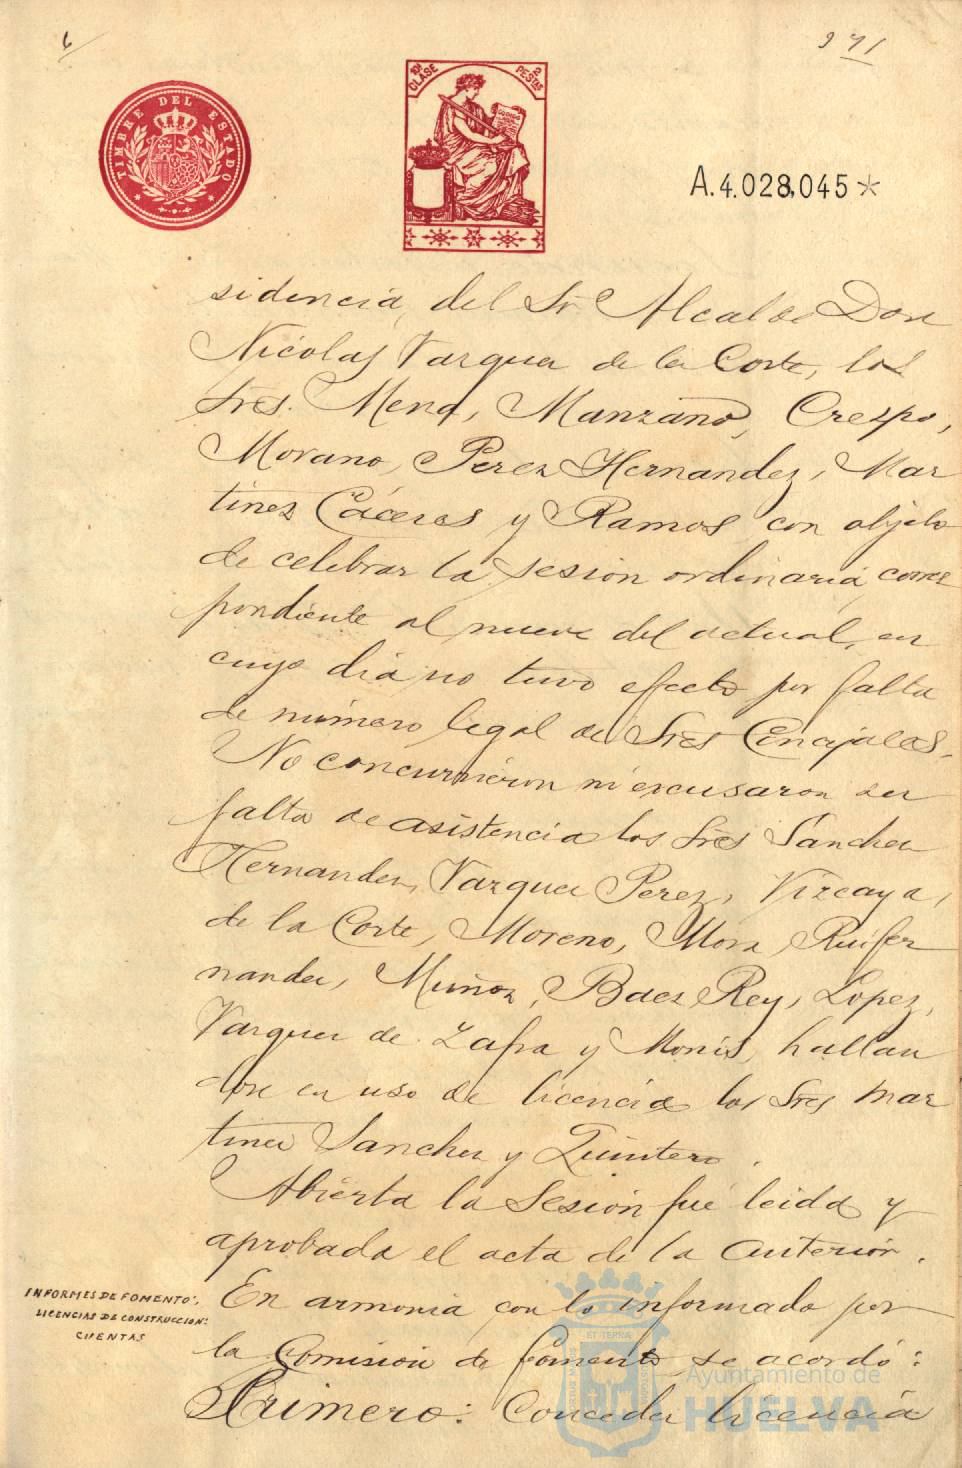 6
971
TIMBRE DEL ESTADO
10ª CLASE
2 PESTAS
A.4.028,045*
sidencia, del Sr Alcalde Don
Nicolas Vazquez de la Corte, los
Sres. Mena, Manzano, Crespo,
Morano, Perez Hernandez, Mar
tinez Cáceres y Ramos con objeto
de celebrar la sesion ordinaria corres
pondiente al nueve del actual, en
cuyo dia no tuvo efecto por falta
de número legal de Sres Concejales.
No concurrieron ni excusaron su
falta de asistencia los Sres Sánchez
Hernandez, Vazquez Perez, Vizcaya,
de la Corte, Moreno, Mora, Ruifer
nandez, Muñoz, Baez Rey, Lopez,
Vazquez de Zafra y Monís, hallan
dose en uso de licencia los Sres Mar
tinez Sanchez y Quintero.
Abierta la Sesión fué leida y
aprobada el acta de la anterior.
INFORMES DE FOMENTO:
LICENCIAS DE CONSTRUCCION:
CUENTAS
En armonia con lo informado por
la Comision de Fomento se acordó:
Primero: Conceder licencia
Ayuntamiento de
HUELVA